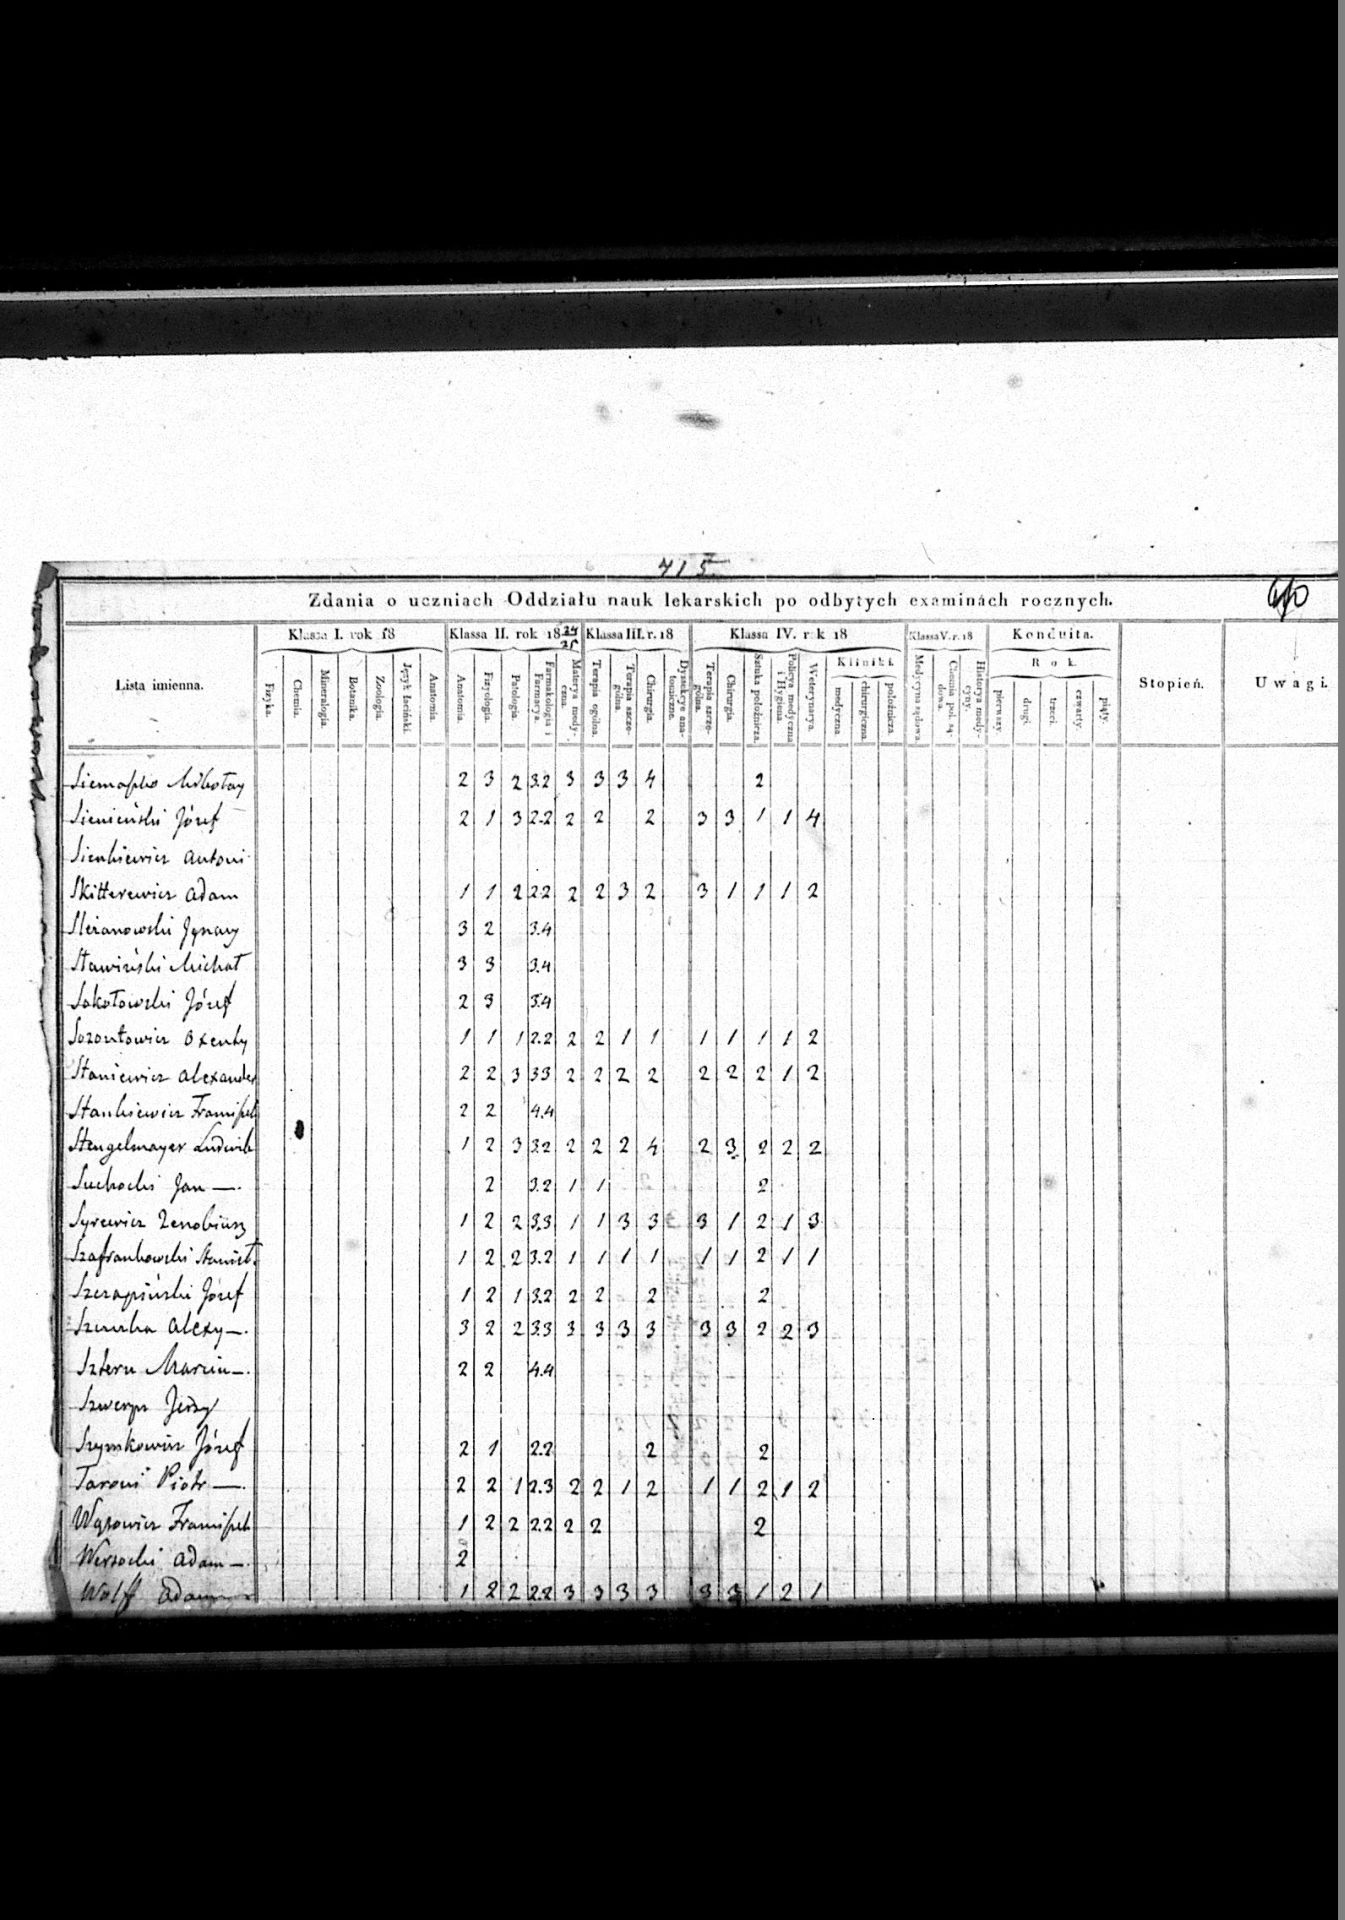 415
Zdania o uczniach Oddziału nauk lekarskich po odbytych examinach rocznych.
Lista imienna.
Klassa I. rok 18
Klassa II. rok 18 24/25
Klassa III. r. 18
Klassa IV. rok 18
Klassa V. r. 18
Konduita.
Stopień.
Uwagi.
Kliniki.
Rok.
Fizyka.
Chemia.
Mineralogia.
Botanika.
Zoologia.
Język łaciński.
Anatomia.
Anatomia.
Fizyologia.
Patologia.
Farmakologia i Farmacya.
Materya medyczna.
Terapia ogólna.
Terapia szczególna.
Chirurgia.
Dyssekcye anatomiczne.
Terapia szczególna.
Chirurgia.
Sztuka położnicza.
Policya medyczna i Hygiena.
Weterynarya.
medyczna.
chirurgiczna.
położnicza.
Medycyna sądowa.
Historya medycyny.
pierwszy.
drugi.
trzeci.
czwarty.
piąty.
Mikołay 2 3 2 3.2 3 3 3 4 2
Sienieński Józef 2 1 3 2.2 2 2 2 3 3 1 1 4
Sienkiewicz Antoni
Skitterewicz Adam 1 1 2 2.2 2 2 3 2 3 1 1 1 2
Ignacy 3 2 3.4
Sławiński Michał 3 3 3.4
Sokołowski Józef 2 3 3.4
Sozontowicz 1 1 1 2.2 2 2 1 1 1 1 1 1 2
Staniewicz Alexander 2 2 3 3.3 2 2 2 2 2 2 2 1 2
Stankiewicz Franciszek 2 2 4.4
Stengelmayer Ludwik 1 2 3 3.2 2 2 2 4 2 3 2 2 2
Suchocki Jan —. 2 3.2 1 1 2
Syrewicz Zenobiusz 1 2 2 3.3 1 1 3 3 3 1 2 1 3
Szafrankowski Stanisł. 1 2 2 3.2 1 1 1 1 1 1 2 1 1
Józef 1 2 1 3.2 2 2 2 2
Alexy —. 3 2 2 3.3 3 3 3 3 3 3 2 2 3
Sztern Marcin —. 2 2 4.4
Jerzy
Szymkowicz Józef 2 1 2.2 2 2
Piotr —. 2 2 1 2.3 2 2 1 2 1 1 2 1 2
Wąsowicz Franciszek 1 2 2 2.2 2 2 2
Adam —. 2
Wolff Adam 1 2 2 2.2 3 3 3 3 3 3 1 2 1